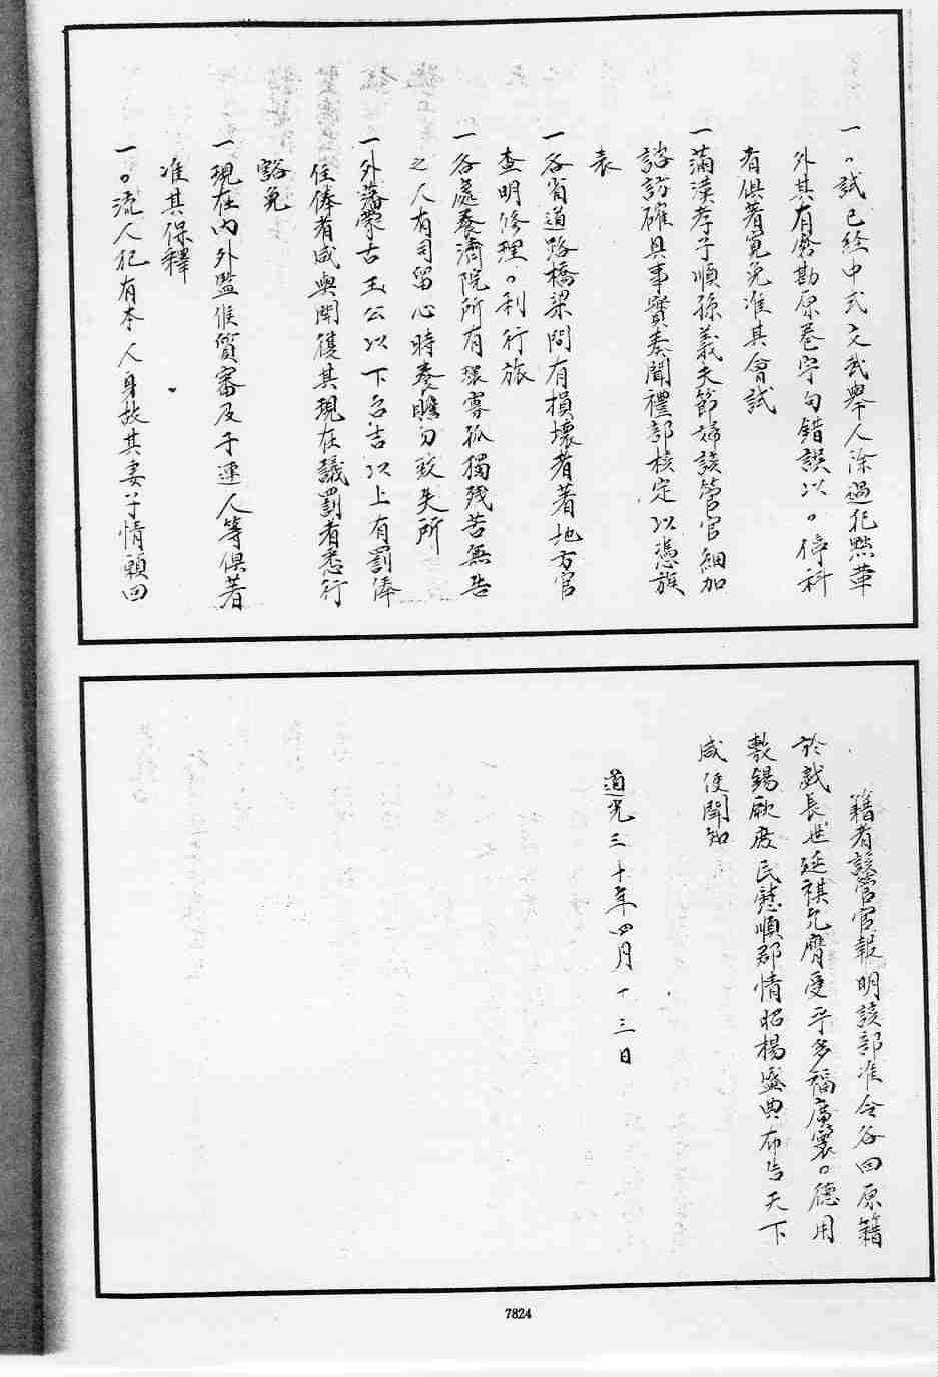 一。試已經中式文武舉人除過犯黜革
外其有磨勘原卷字句錯誤以。停科
者俱著寬免准其會試
一滿漢孝子順孫義夫節婦該管官細加
諮訪確具事實奏聞禮部核定以憑旌
表
一各省道路橋梁間有損壞者著地方官
查明修理。利行旅
一各處養濟院所有瓌寡孤獨殘苦無告
之人有司留心時養贍勿致失所
一外藩蒙古王公以下台吉以上有罰俸
住俸者咸與開復其現在議罰者悉行
豁免
一現在內外監候質審及干連人等俱著
准其保釋
一。流人犯有本人身故其妻子情願回
籍者該管官報明該部准令各回原籍
於戲長世延祺允膺受乎多福廣褱。德用
敷錫厥庶民慰順郡情昭楊盛典布告天下
咸使聞知
道光三十年四月十三日
7824